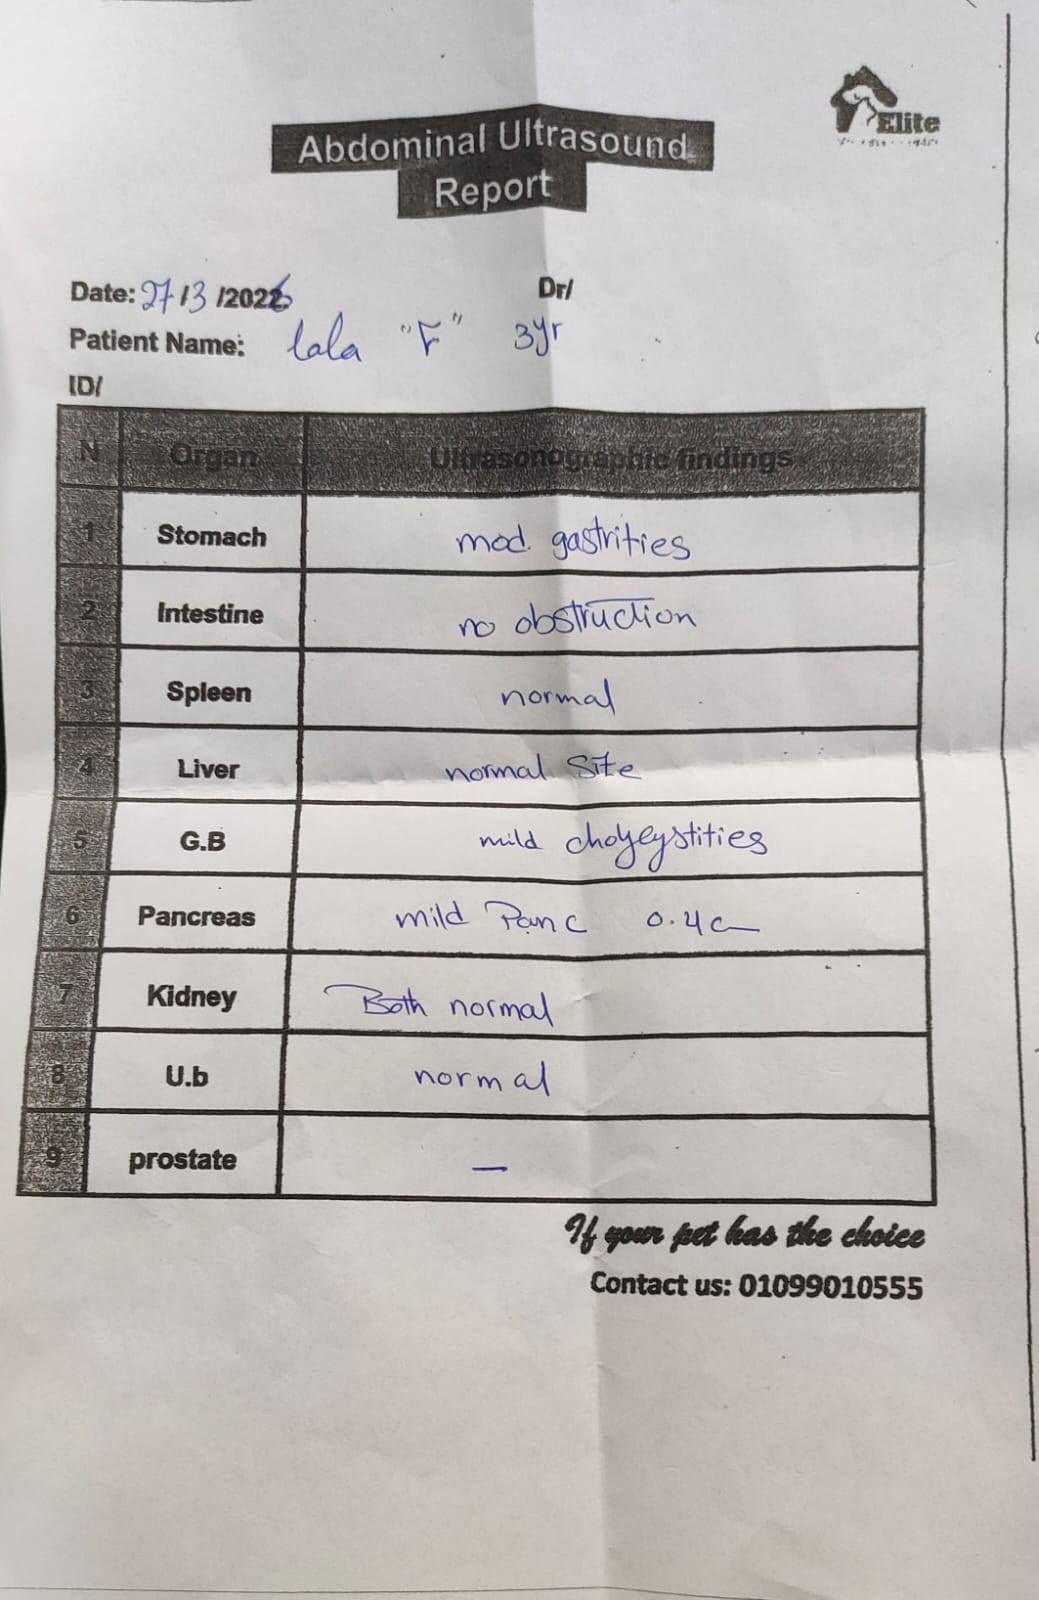 Elite
Abdominal Ultrasound
Report
Date: 27/3/2026 Dr/
Patient Name: lala "F" 3yr
ID/
N Organ Ultrasonographic findings
1 Stomach mod. gastrities
2 Intestine no obstruction
3 Spleen normal
4 Liver normal Site
5 G.B mild cholycystities
6 Pancreas mild Panc 0.4c
7 Kidney Both normal
8 U.b normal
9 prostate —
If your pet has the choice
Contact us: 01099010555